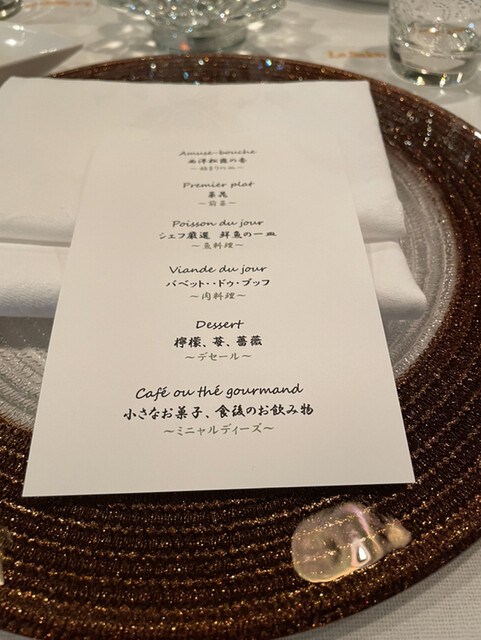 Amuse-bouche
西洋松露の香
～始まりの一皿～
Premier plat
菜花
～前菜～
Poisson du jour
シェフ厳選 鮮魚の一皿
～魚料理～
Viande du jour
バベット・・ドゥ・ブッフ
～肉料理～
Dessert
檸檬、苺、薔薇
～デセール～
Café ou thé gourmand
小さなお菓子、食後のお飲み物
～ミニャルディーズ～